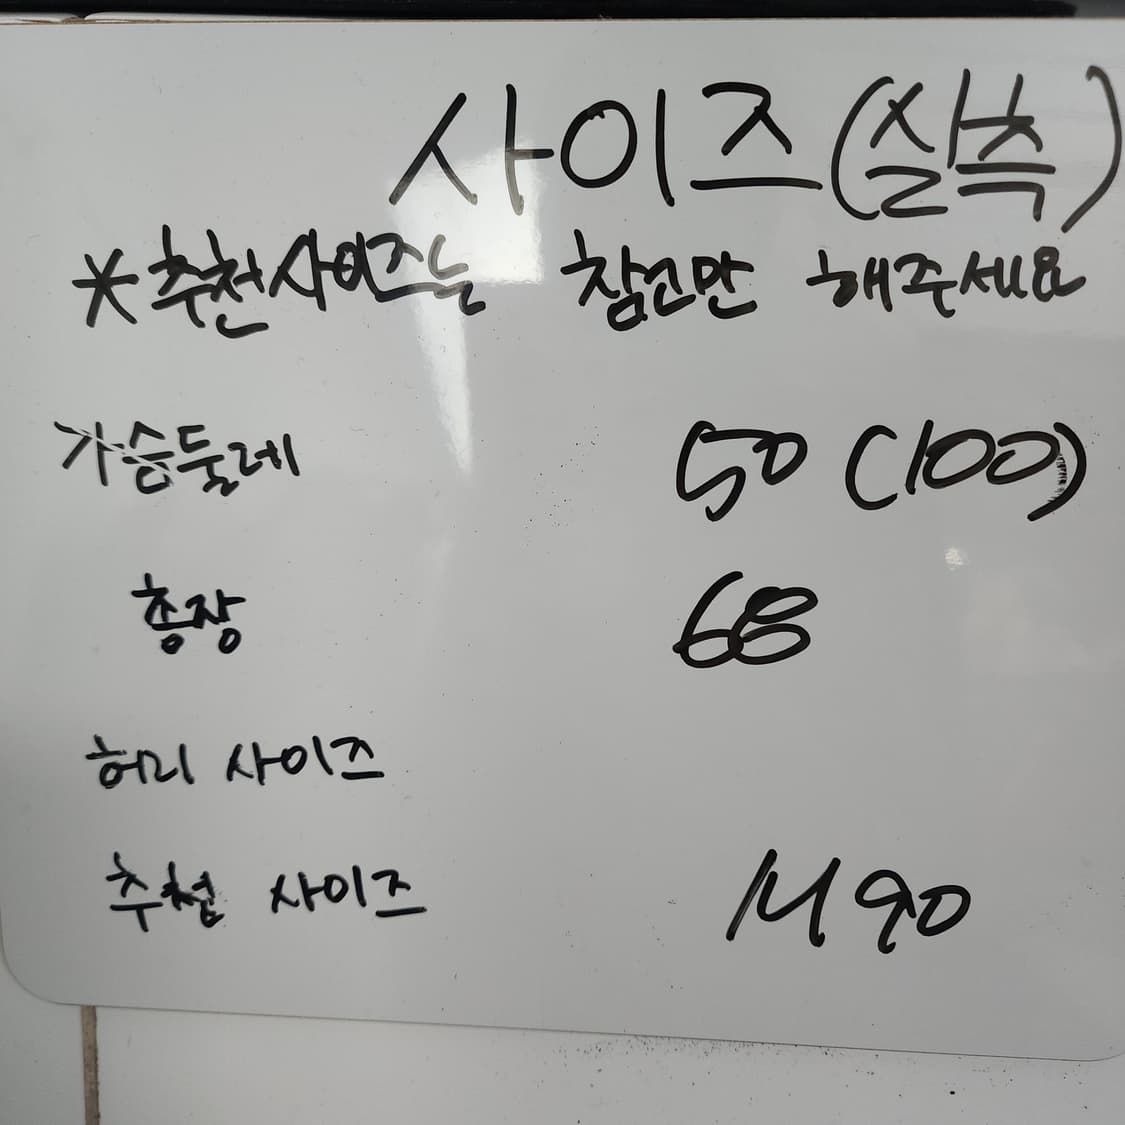 사이즈(실측)
*추천사이즈는 참고만 해주세요
가슴둘레 50 (100)
총장 68
허리 사이즈
추천 사이즈 M 90